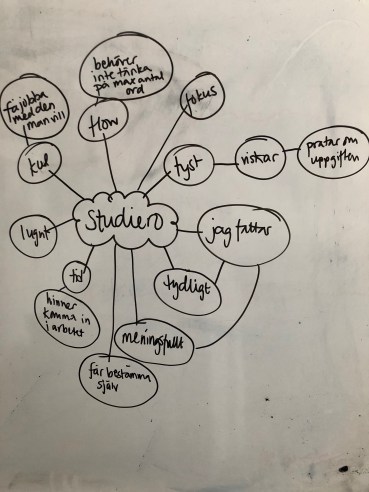 behöver
inte tänka
på max antal
ord
få jobba
med den
man vill
flow
fokus
kul
tyst
viskar
pratar om
uppgiften
Studiero
lugnt
jag fattar
tid
tydligt
hinner
komma in
i arbetet
meningsfullt
får bestämma
själv